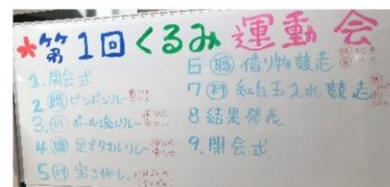 ★第1回くるみ運動会
1.開会式
2.(職)ピンポンリレー
3.(利)ボール送りリレー
4.(職)足でタオルリレー
5.(利)宝さがし
6(職)借り物競走
7(利)紅白玉入れ競走
8結果発表
9.閉会式